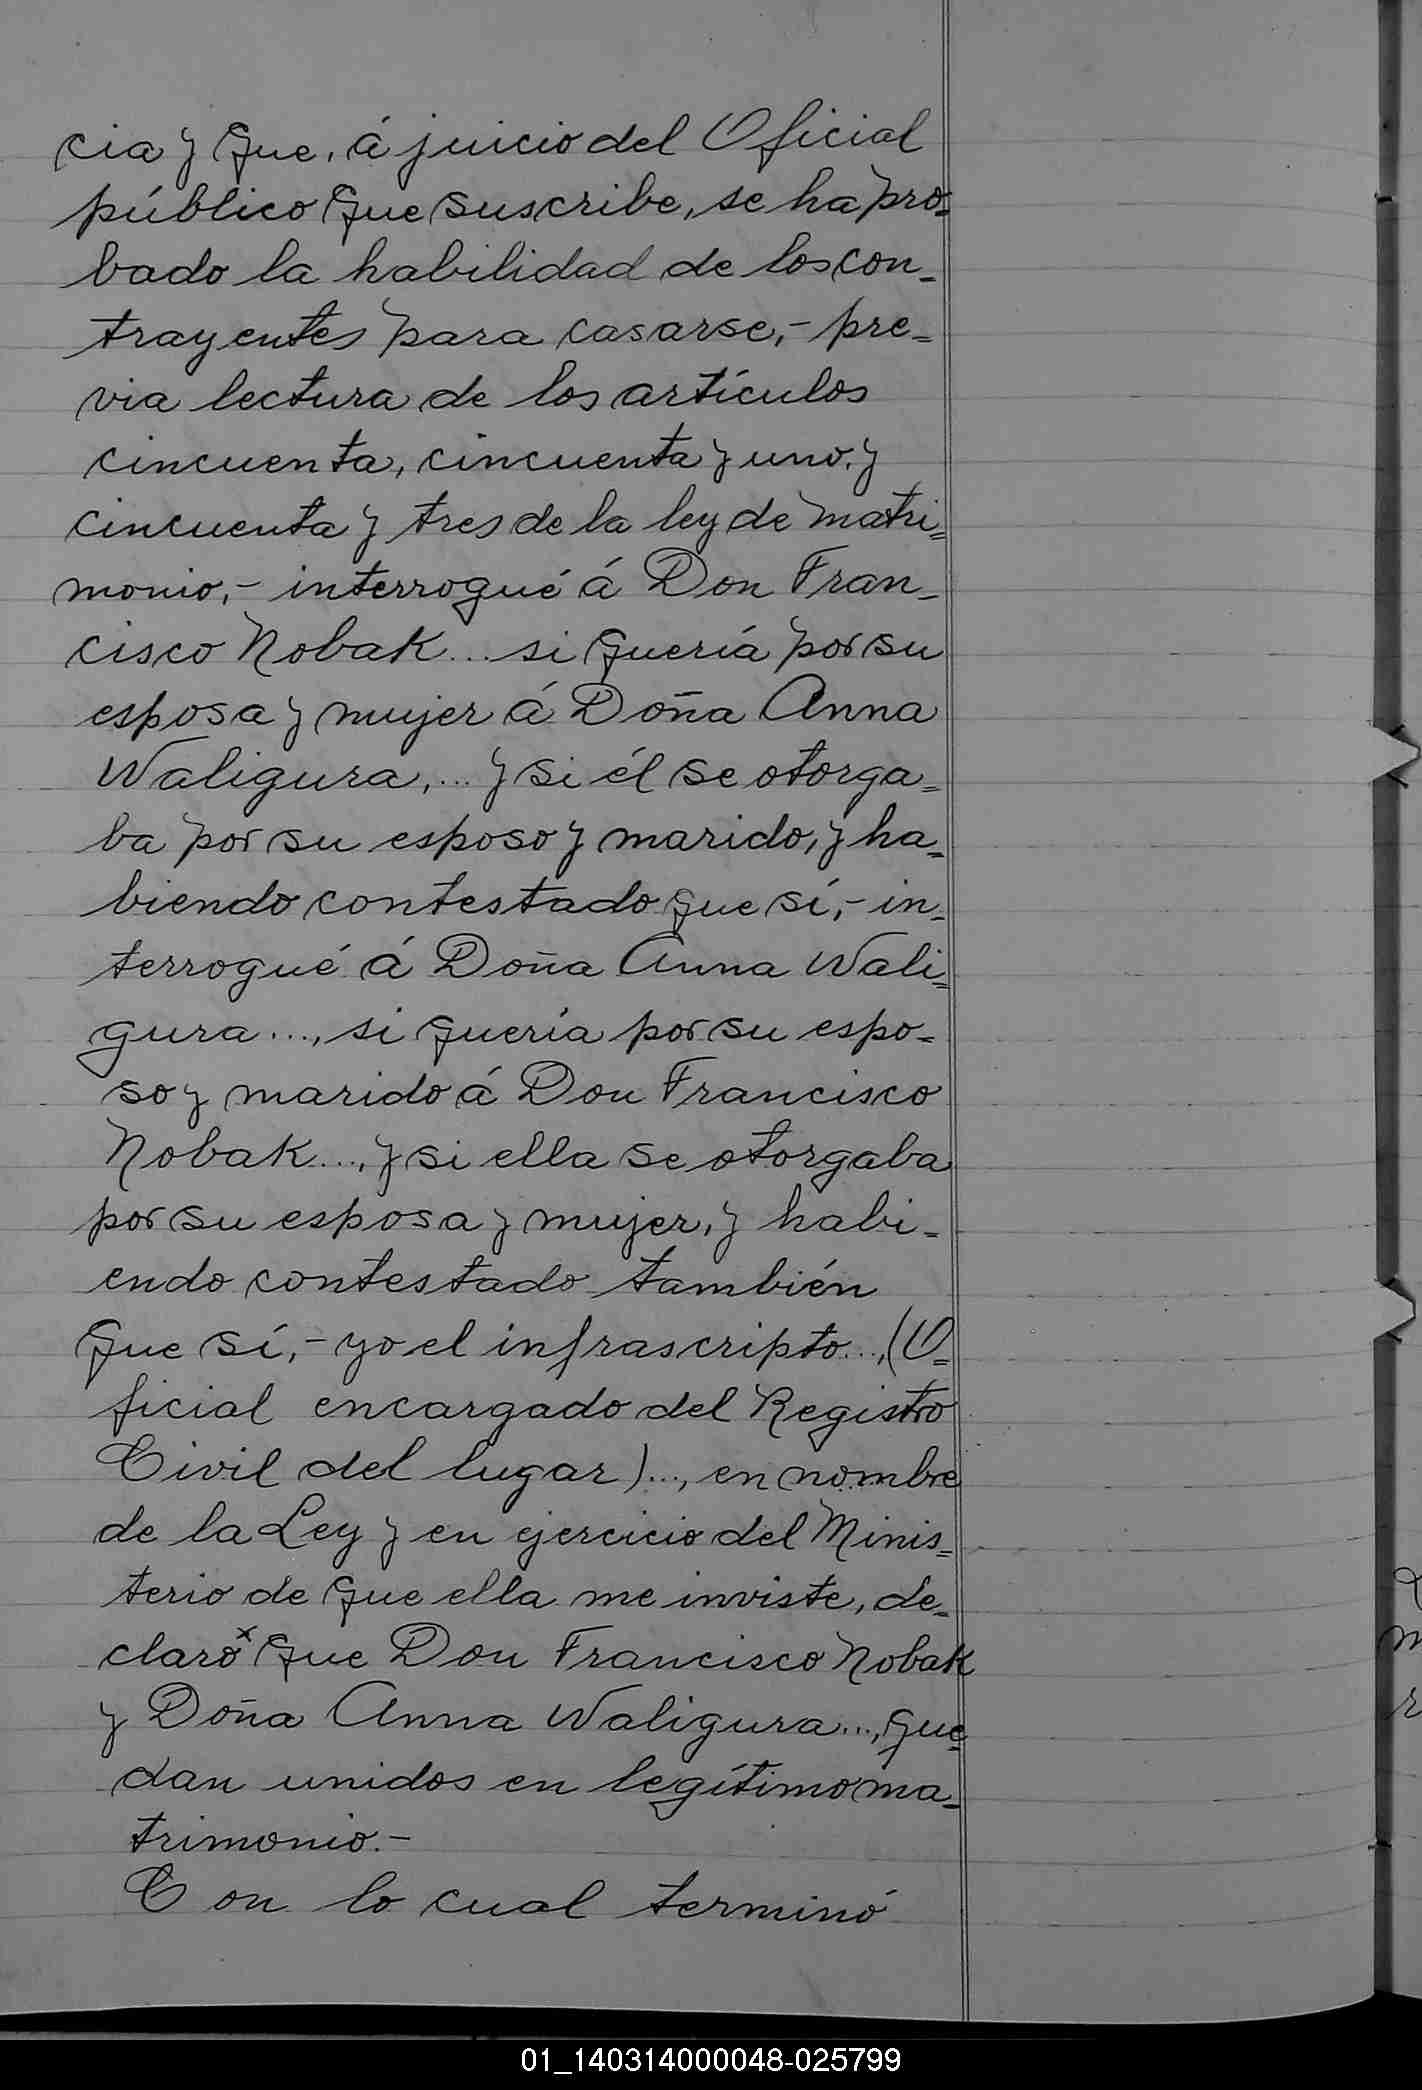 cia y que, á juicio del Oficial
público que suscribe, se ha pro=
bado la habilidad de los con=
trayentes para casarse,- pre=
via lectura de los artículos
cincuenta, cincuenta y uno, y
cincuenta y tres de la ley de matri=
monio,- interrogué á Don Fran=
cisco Nobak... si quería por su
esposa y mujer á Doña Anna
Waligura,... y si él se otorga=
ba por su esposo y marido, y ha=
biendo contestado que sí,- in=
terrogué á Doña Anna Wali=
gura..., si quería por su espo=
so y marido á Don Francisco
Nobak..., y si ella se otorgaba
por su esposa y mujer, y habi=
endo contestado también
que sí,- yo el infrascripto..., (O=
ficial encargado del Registro
Civil del lugar)..., en nombre
de la Ley y en ejercicio del Minis=
terio de que ella me inviste, de=
claro x que Don Francisco Nobak
y Doña Anna Waligura..., que=
dan unidos en legítimo ma=
trimonio.-
Con lo cual terminó
01_140314000048-025799